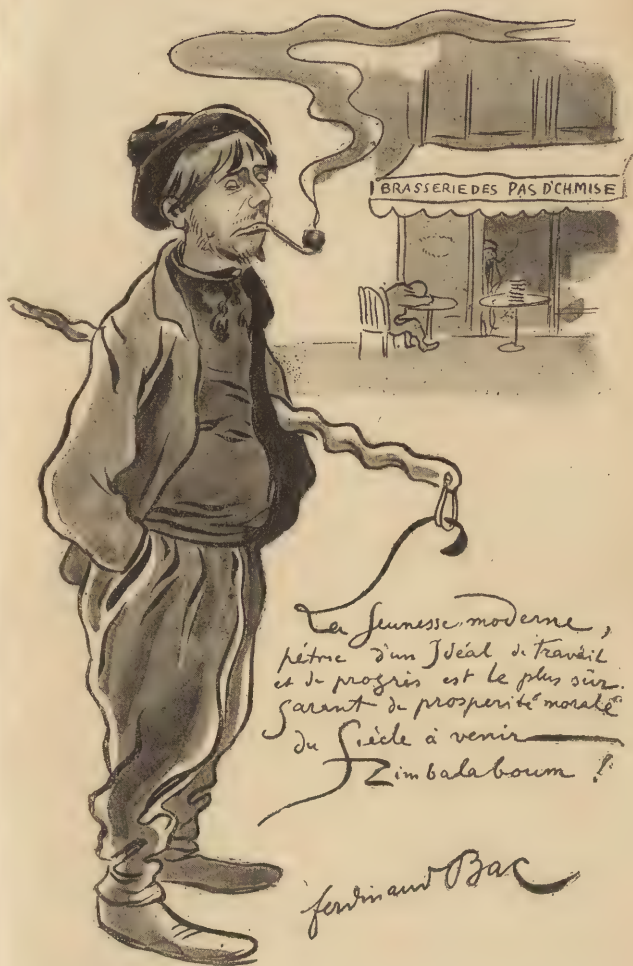 BRASSERIE DES PAS D'CHMISE
La Jeunesse moderne,
pétrie d'un Idéal de travail
et de progrès est le plus sûr
Garant de prosperité morale
du Siècle à venir
Zimbalaboum !
ferdinand Bac